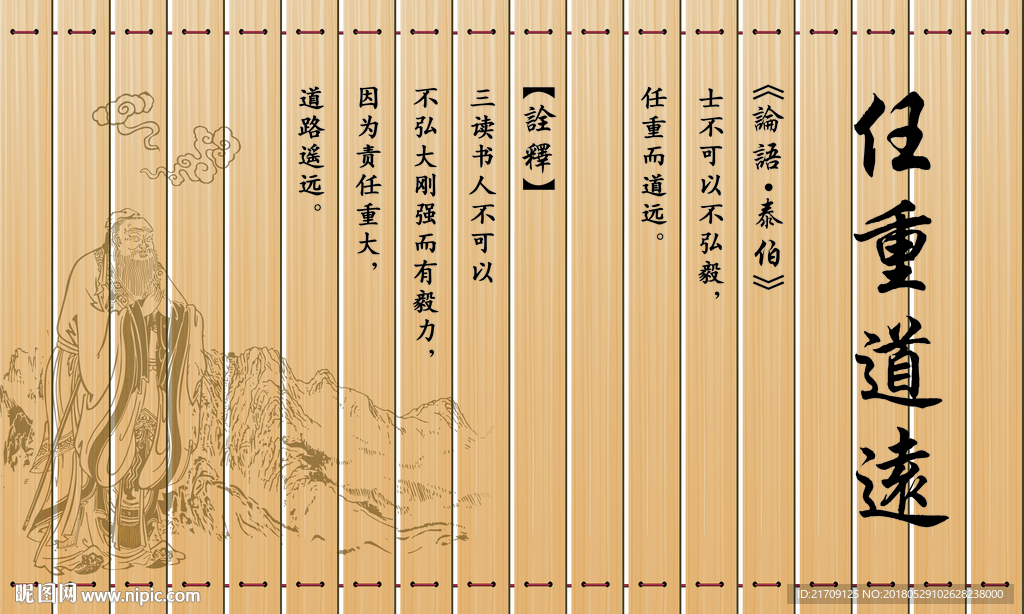 任重道遠
《論語·泰伯》
士不可以不弘毅，
任重而道远。
【詮釋】
三读书人不可以
不弘大刚强而有毅力，
因为责任重大，
道路遥远。
昵图网 www.nipic.com
ID:21709125 NO:20180529102628238000